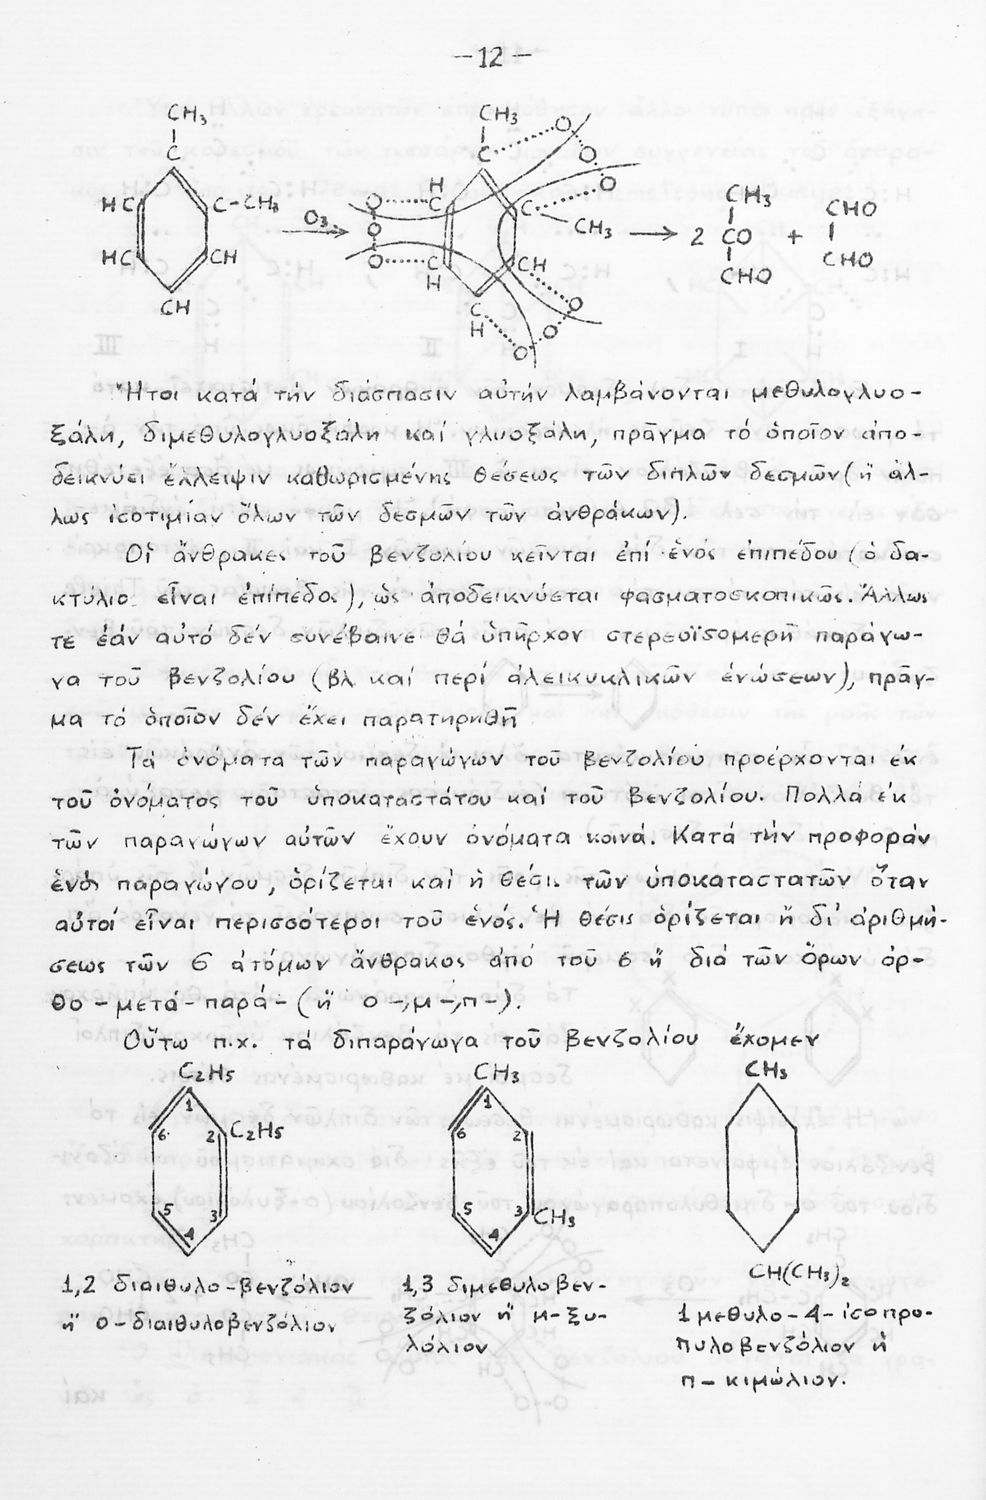 -12-
CH₃
C
HC
C-CH₃
HC
CH
CH
O₃
CH₃
C
H
C
C
CH₃
C
H
CH
C
H
O
O
O
O
O
O
O
O
O
2
CH₃
CO
CHO
+
CHO
CHO
Ἤτοι κατά τήν διάσπασιν αὐτήν λαμβάνονται μεθυλογλυο-
ξάλη, διμεθυλογλυοξάλη καί γλυοξάλη, πρᾶγμα τό ὁποῖον ἀπο-
δεικνύει ἔλλειψιν καθωρισμένης θέσεως τῶν διπλῶν δεσμῶν (ἤ ἀλ-
λως ἰσοτιμίαν ὅλων τῶν δεσμῶν τῶν ἀνθράκων).
Οἱ ἄνθρακες τοῦ βενζολίου κεῖνται ἐπί ἑνός ἐπιπέδου (ὁ δα-
κτύλιο εἶναι ἐπίπεδος), ὡς ἀποδεικνύεται φασματοσκοπικῶς. Ἄλλως
τε ἐάν αὐτό δέν συνέβαινε θά ὑπῆρχον στερεοϊσομερῆ παράγω-
γα τοῦ βενζολίου (βλ. καί περί ἀλεικυκλικῶν ἑνώσεων), πρᾶγ-
μα τό ὁποῖον δέν ἔχει παρατηρηθῆ
Τά ὀνόματα τῶν παραγώγων τοῦ βενζολίου προέρχονται ἐκ
τοῦ ὀνόματος τοῦ ὑποκαταστάτου καί τοῦ βενζολίου. Πολλά ἐκ
τῶν παραγώγων αὐτῶν ἔχουν ὀνόματα κοινά. Κατά τήν προφοράν
ἑνός παραγώγου, ὁρίζεται καί ἡ θέσις τῶν ὑποκαταστατῶν ὅταν
αὐτοί εἶναι περισσότεροι τοῦ ἑνός. Ἡ θέσις ὁρίζεται ἤ δι' ἀριθμή-
σεως τῶν 6 ἀτόμων ἄνθρακος ἀπό τοῦ 6 ἤ διά τῶν ὅρων ὀρ-
θο-μετά-παρά-(ἤ ο-,μ-,π-).
Οὕτω π.χ. τά διπαράγωγα τοῦ βενζολίου ἔχομεν
C₂H₅
1
2
C₂H₅
3
4
5
6
1,2 διαιθυλο-βενζόλιον
ἤ ο-διαιθυλοβενζόλιον
CH₃
1
2
3
CH₃
4
5
6
1,3 διμεθυλοβεν-
ζόλιον ἤ μ-ξυ-
λόλιον
CH₃
CH(CH₃)₂
1μεθυλο-4-ἰσοπρο-
πυλοβενζόλιον ἤ
π-κιμώλιον.